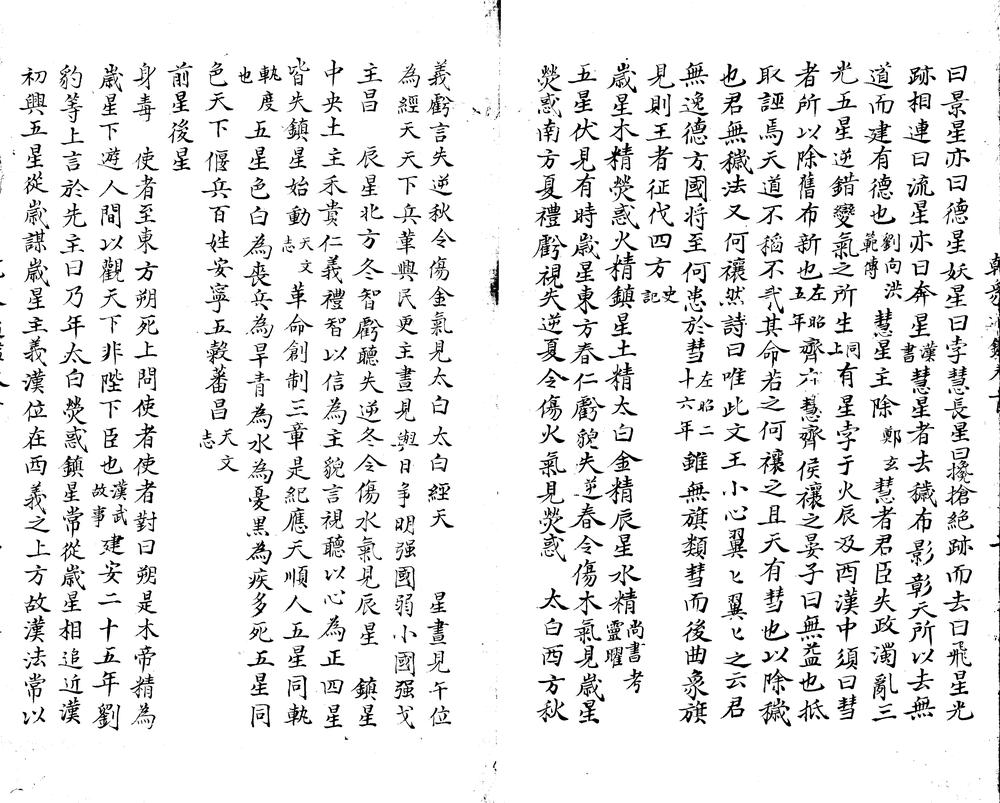 曰景星亦曰德星妖星曰孛慧長星曰攙搶絕跡而去曰飛星光
跡相連曰流星亦曰奔星漢書慧星者去穢布影彰天所以去無
道而建有德也劉向洪範傳慧星主除鄭玄慧者君臣失政濁亂三
光五星逆錯變氣之所生同上有星孛于火辰及西漢中須曰彗
者所以除舊布新也左昭五年齊六慧齊侯禳之晏子曰無益也抵
取誣焉天道不謟不貳其命若之何禳之且天有彗也以除穢
也君無穢法又何禳然詩曰唯此文王小心翼〻翼〻之云君
無逸德方國将至何患於彗左昭二十六年雖無旗類彗而後曲象旗
見則王者征代四方史記
歲星木精熒惑火精鎮星土精太白金精辰星水精尚書考靈曜
五星伏見有時歲星東方春仁虧貌失逆春令傷木氣見歲星
熒惑南方夏禮虧視失逆夏令傷火氣見熒惑　太白西方秋
義虧言失逆秋令傷金氣見太白太白經天　　星晝見午位
為經天天下兵革興民更主晝見與日争明强國弱小國强戈
主昌　辰星北方冬智虧聽失逆冬令傷水氣見辰星　鎮星
中央土主禾貴仁義禮智以信為主貌言視聽以心為正四星
皆失鎮星始動天文志革命創制三章是紀應天順人五星同軌
軌度也五星色白為喪兵為旱青為水為憂黑為疾多死五星同
色天下偃兵百姓安寧五穀蕃昌天文志
前星後星
身毒　使者至東方朔死上問使者使者對曰朔是木帝精為
歲星下遊人間以觀天下非陛下臣也漢武故事建安二十五年劉
豹等上言於先主曰乃年太白熒惑鎮星常從歲星相追近漢
初興五星從歲謀歲星主義漢位在西義之上方故漢法常以